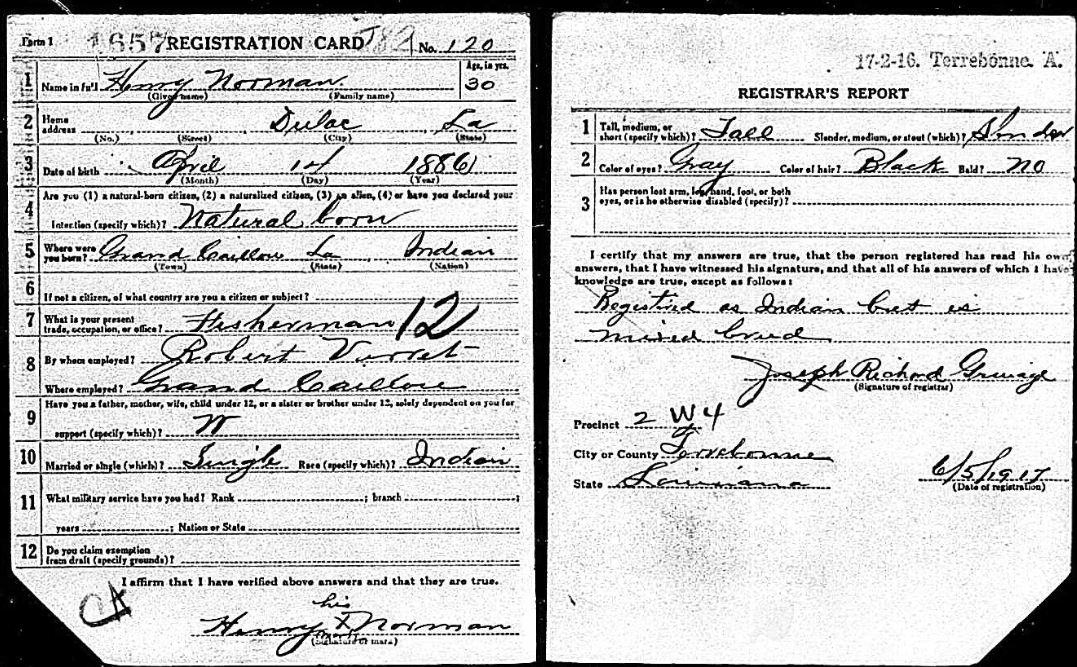 Form 1 1657 REGISTRATION CARD No. 120
1 Name in full Henry Norman Age, in yrs. 30
(Given name) (Family name)
2 Home address Dulac La
(No.) (Street) (City) (State)
3 Date of birth April 14 1886
(Month) (Day) (Year)
4 Are you (1) a natural-born citizen, (2) a naturalized citizen, (3) an alien, (4) or have you declared your
intention (specify which)? Natural born
5 Where were you born? Grand Caillou La Indian
(Town) (State) (Nation)
6 If not a citizen, of what country are you a citizen or subject?
7 What is your present trade, occupation, or office? Fisherman 12
8 By whom employed? Robert Verret
Where employed? Grand Caillou
9 Have you a father, mother, wife, child under 12, or a sister or brother under 12, solely dependent on you for
support (specify which)?
10 Married or single (which)? Single Race (specify which)? Indian
11 What military service have you had? Rank ; branch ;
years ; Nation or State
12 Do you claim exemption from draft (specify grounds)?
I affirm that I have verified above answers and that they are true.
his
Henry X Norman
mark
(Signature or mark)
17-2-16. Terrebonne. A.
REGISTRAR'S REPORT
1 Tall, medium, or short (specify which)? Tall Slender, medium, or stout (which)? Slender
2 Color of eyes? Gray Color of hair? Black Bald? No
3 Has person lost arm, leg, hand, foot, or both eyes, or is he otherwise disabled (specify)?
I certify that my answers are true, that the person registered has read his own
answers, that I have witnessed his signature, and that all of his answers of which I have
knowledge are true, except as follows:
Registired as Indian but is
mixed breed
Joseph Richard
(Signature of registrar)
Precinct 2 W 4
City or County Terrebonne
State Louisiana 6/5/1917
(Date of registration)